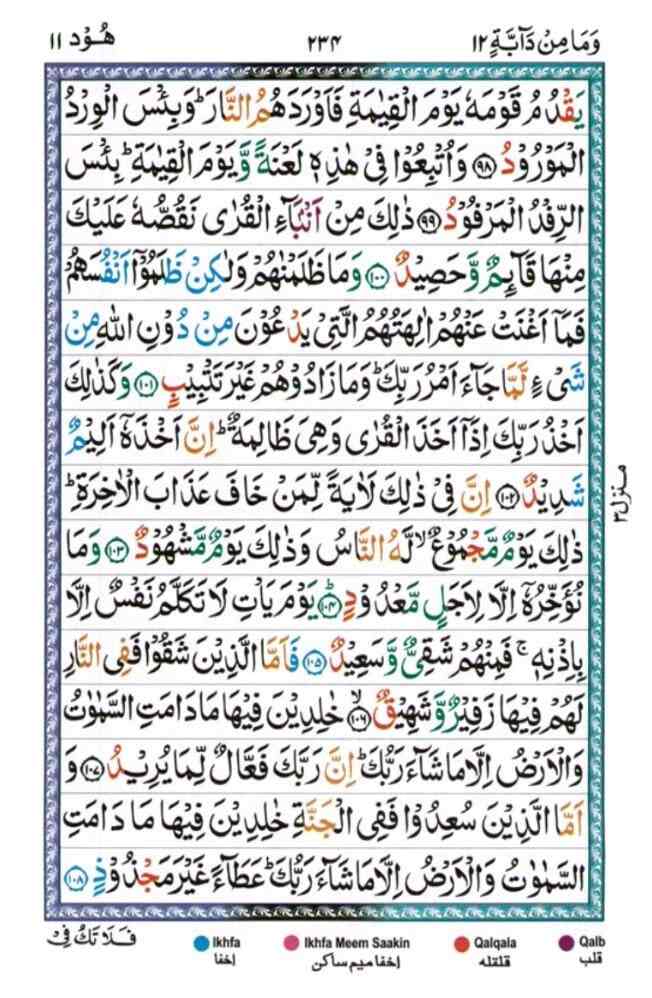 وَمَا مِنْ دَآبَّةٍ ١٢ ٢٣٤ هُوْد ١١
يَقْدُمُ قَوْمَهٗ يَوْمَ الْقِيٰمَةِ فَاَوْرَدَهُمُ النَّارَ ؕ وَبِئْسَ الْوِرْدُ
الْمَوْرُوْدُ ﴿۹۸﴾ وَاُتْبِعُوْا فِىْ هٰذِهٖ لَعْنَةً وَّيَوْمَ الْقِيٰمَةِ ؕ بِئْسَ
الرِّفْدُ الْمَرْفُوْدُ ﴿۹۹﴾ ذٰلِكَ مِنْ اَنْۢبَآءِ الْقُرٰى نَقُصُّهٗ عَلَيْكَ
مِنْهَا قَآئِمٌ وَّحَصِيْدٌ ﴿۱۰۰﴾ وَمَا ظَلَمْنٰهُمْ وَلٰكِنْ ظَلَمُوْۤا اَنْفُسَهُمْ
فَمَاۤ اَغْنَتْ عَنْهُمْ اٰلِهَتُهُمُ الَّتِىْ يَدْعُوْنَ مِنْ دُوْنِ اللّٰهِ مِنْ
شَىْءٍ لَّمَّا جَآءَ اَمْرُ رَبِّكَ ؕ وَمَا زَادُوْهُمْ غَيْرَ تَتْبِيْبٍ ﴿۱۰۱﴾ وَكَذٰلِكَ
اَخْذُ رَبِّكَ اِذَاۤ اَخَذَ الْقُرٰى وَهِىَ ظَالِمَةٌ ؕ اِنَّ اَخْذَهٗۤ اَلِيْمٌ
شَدِيْدٌ ﴿۱۰۲﴾ اِنَّ فِىْ ذٰلِكَ لَاٰيَةً لِّمَنْ خَافَ عَذَابَ الْاٰخِرَةِ ؕ
ذٰلِكَ يَوْمٌ مَّجْمُوْعٌ ۙ لَّهُ النَّاسُ وَذٰلِكَ يَوْمٌ مَّشْهُوْدٌ ﴿۱۰۳﴾ وَمَا
نُؤَخِّرُهٗۤ اِلَّا لِاَجَلٍ مَّعْدُوْدٍ ؕ ﴿۱۰۴﴾ يَوْمَ يَاْتِ لَا تَكَلَّمُ نَفْسٌ اِلَّا
بِاِذْنِهٖ ۚ فَمِنْهُمْ شَقِىٌّ وَّسَعِيْدٌ ﴿۱۰۵﴾ فَاَمَّا الَّذِيْنَ شَقُوْا فَفِى النَّارِ
لَهُمْ فِيْهَا زَفِيْرٌ وَّشَهِيْقٌ ۙ ﴿۱۰۶﴾ خٰلِدِيْنَ فِيْهَا مَا دَامَتِ السَّمٰوٰتُ
وَالْاَرْضُ اِلَّا مَا شَآءَ رَبُّكَ ؕ اِنَّ رَبَّكَ فَعَّالٌ لِّمَا يُرِيْدُ ﴿۱۰۷﴾ وَ
اَمَّا الَّذِيْنَ سُعِدُوْا فَفِى الْجَنَّةِ خٰلِدِيْنَ فِيْهَا مَا دَامَتِ
السَّمٰوٰتُ وَالْاَرْضُ اِلَّا مَا شَآءَ رَبُّكَ ؕ عَطَآءً غَيْرَ مَجْذُوْذٍ ﴿۱۰۸﴾
منزل ٣
فَلَا تَكُ فِىْ
Ikhfa Ikhfa Meem Saakin Qalqala Qalb
اخفا اخفا میم ساکن قلقله قلب